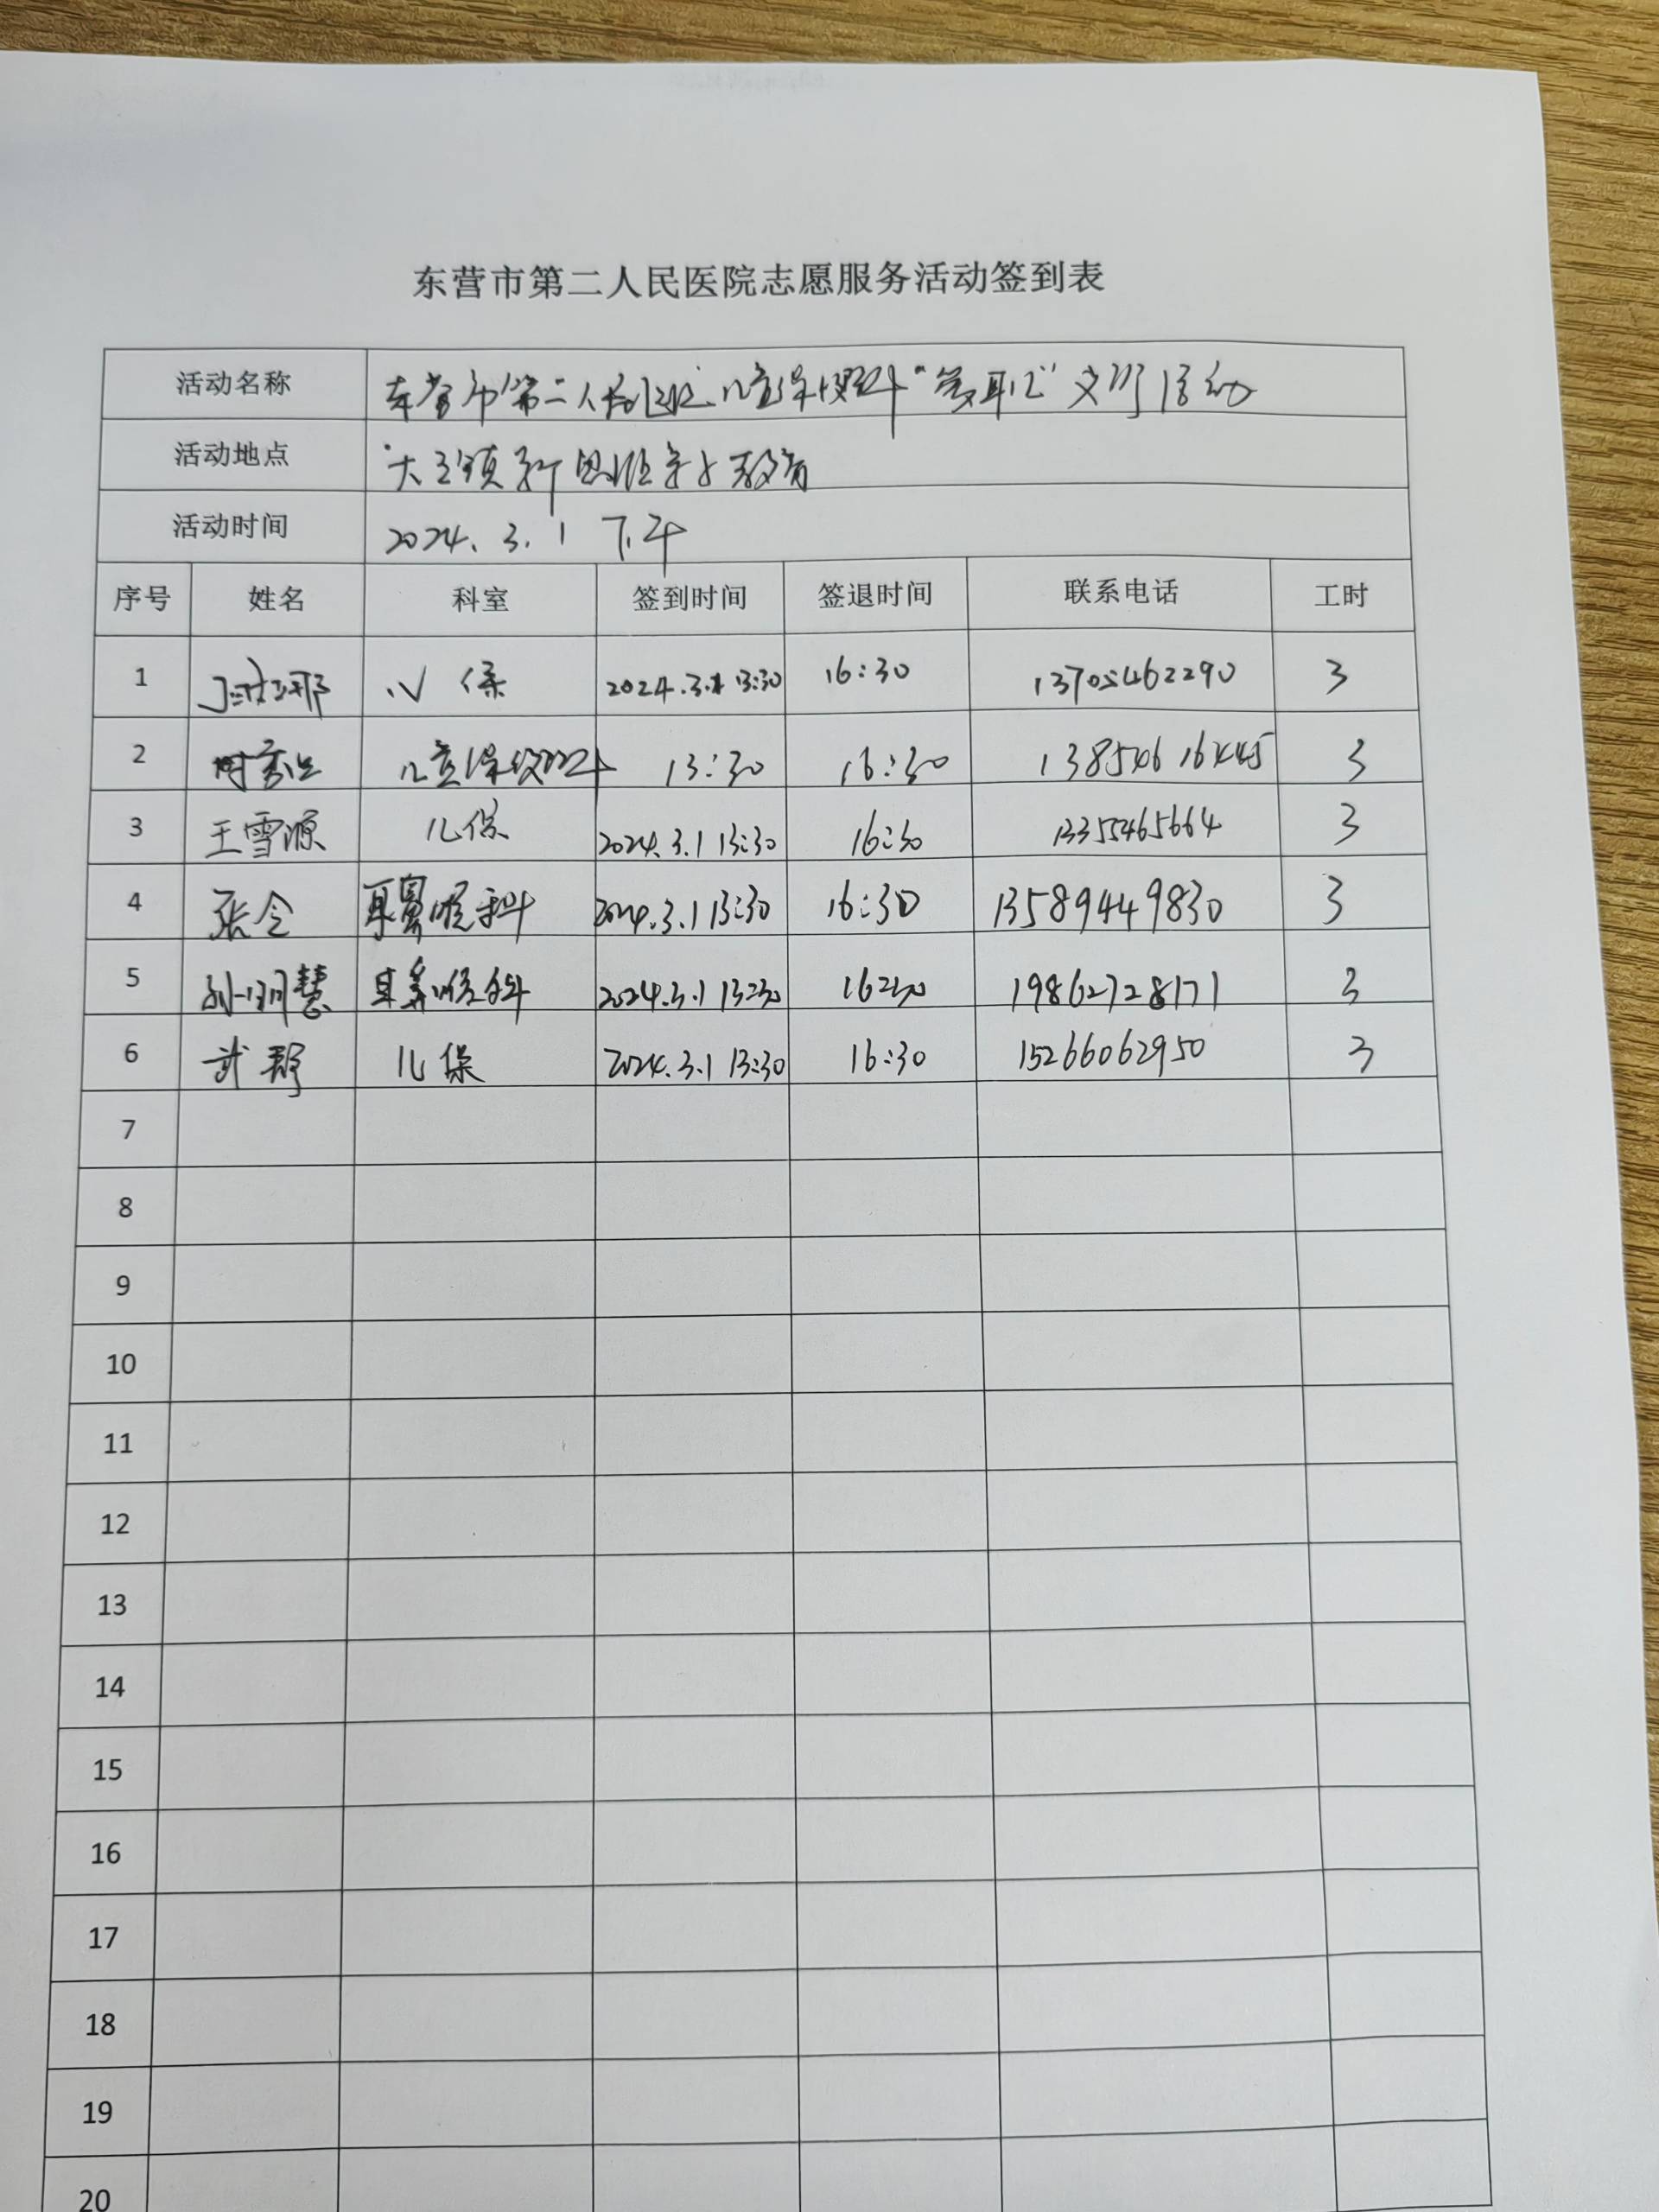 东营市第二人民医院志愿服务活动签到表
活动名称 东营市第二人民医院儿童保健科"爱耳日"义诊活动
活动地点 大王镇 教育
活动时间 2024.3.1 下午
序号 姓名 科室 签到时间 签退时间 联系电话 工时
1 儿保 2024.3.1 13:30 16:30 13705462290 3
2 儿童保健科 13:30 16:30 3
3 王雪源 儿保 2024.3.1 13:30 16:30 13355465664 3
4 张令 耳鼻喉科 2024.3.1 13:30 16:30 13589449830 3
5 耳鼻喉科 2024.3.1 13:30 16:30 19862728171 3
6 武静 儿保 2024.3.1 13:30 16:30 15266062950 3
7
8
9
10
11
12
13
14
15
16
17
18
19
20